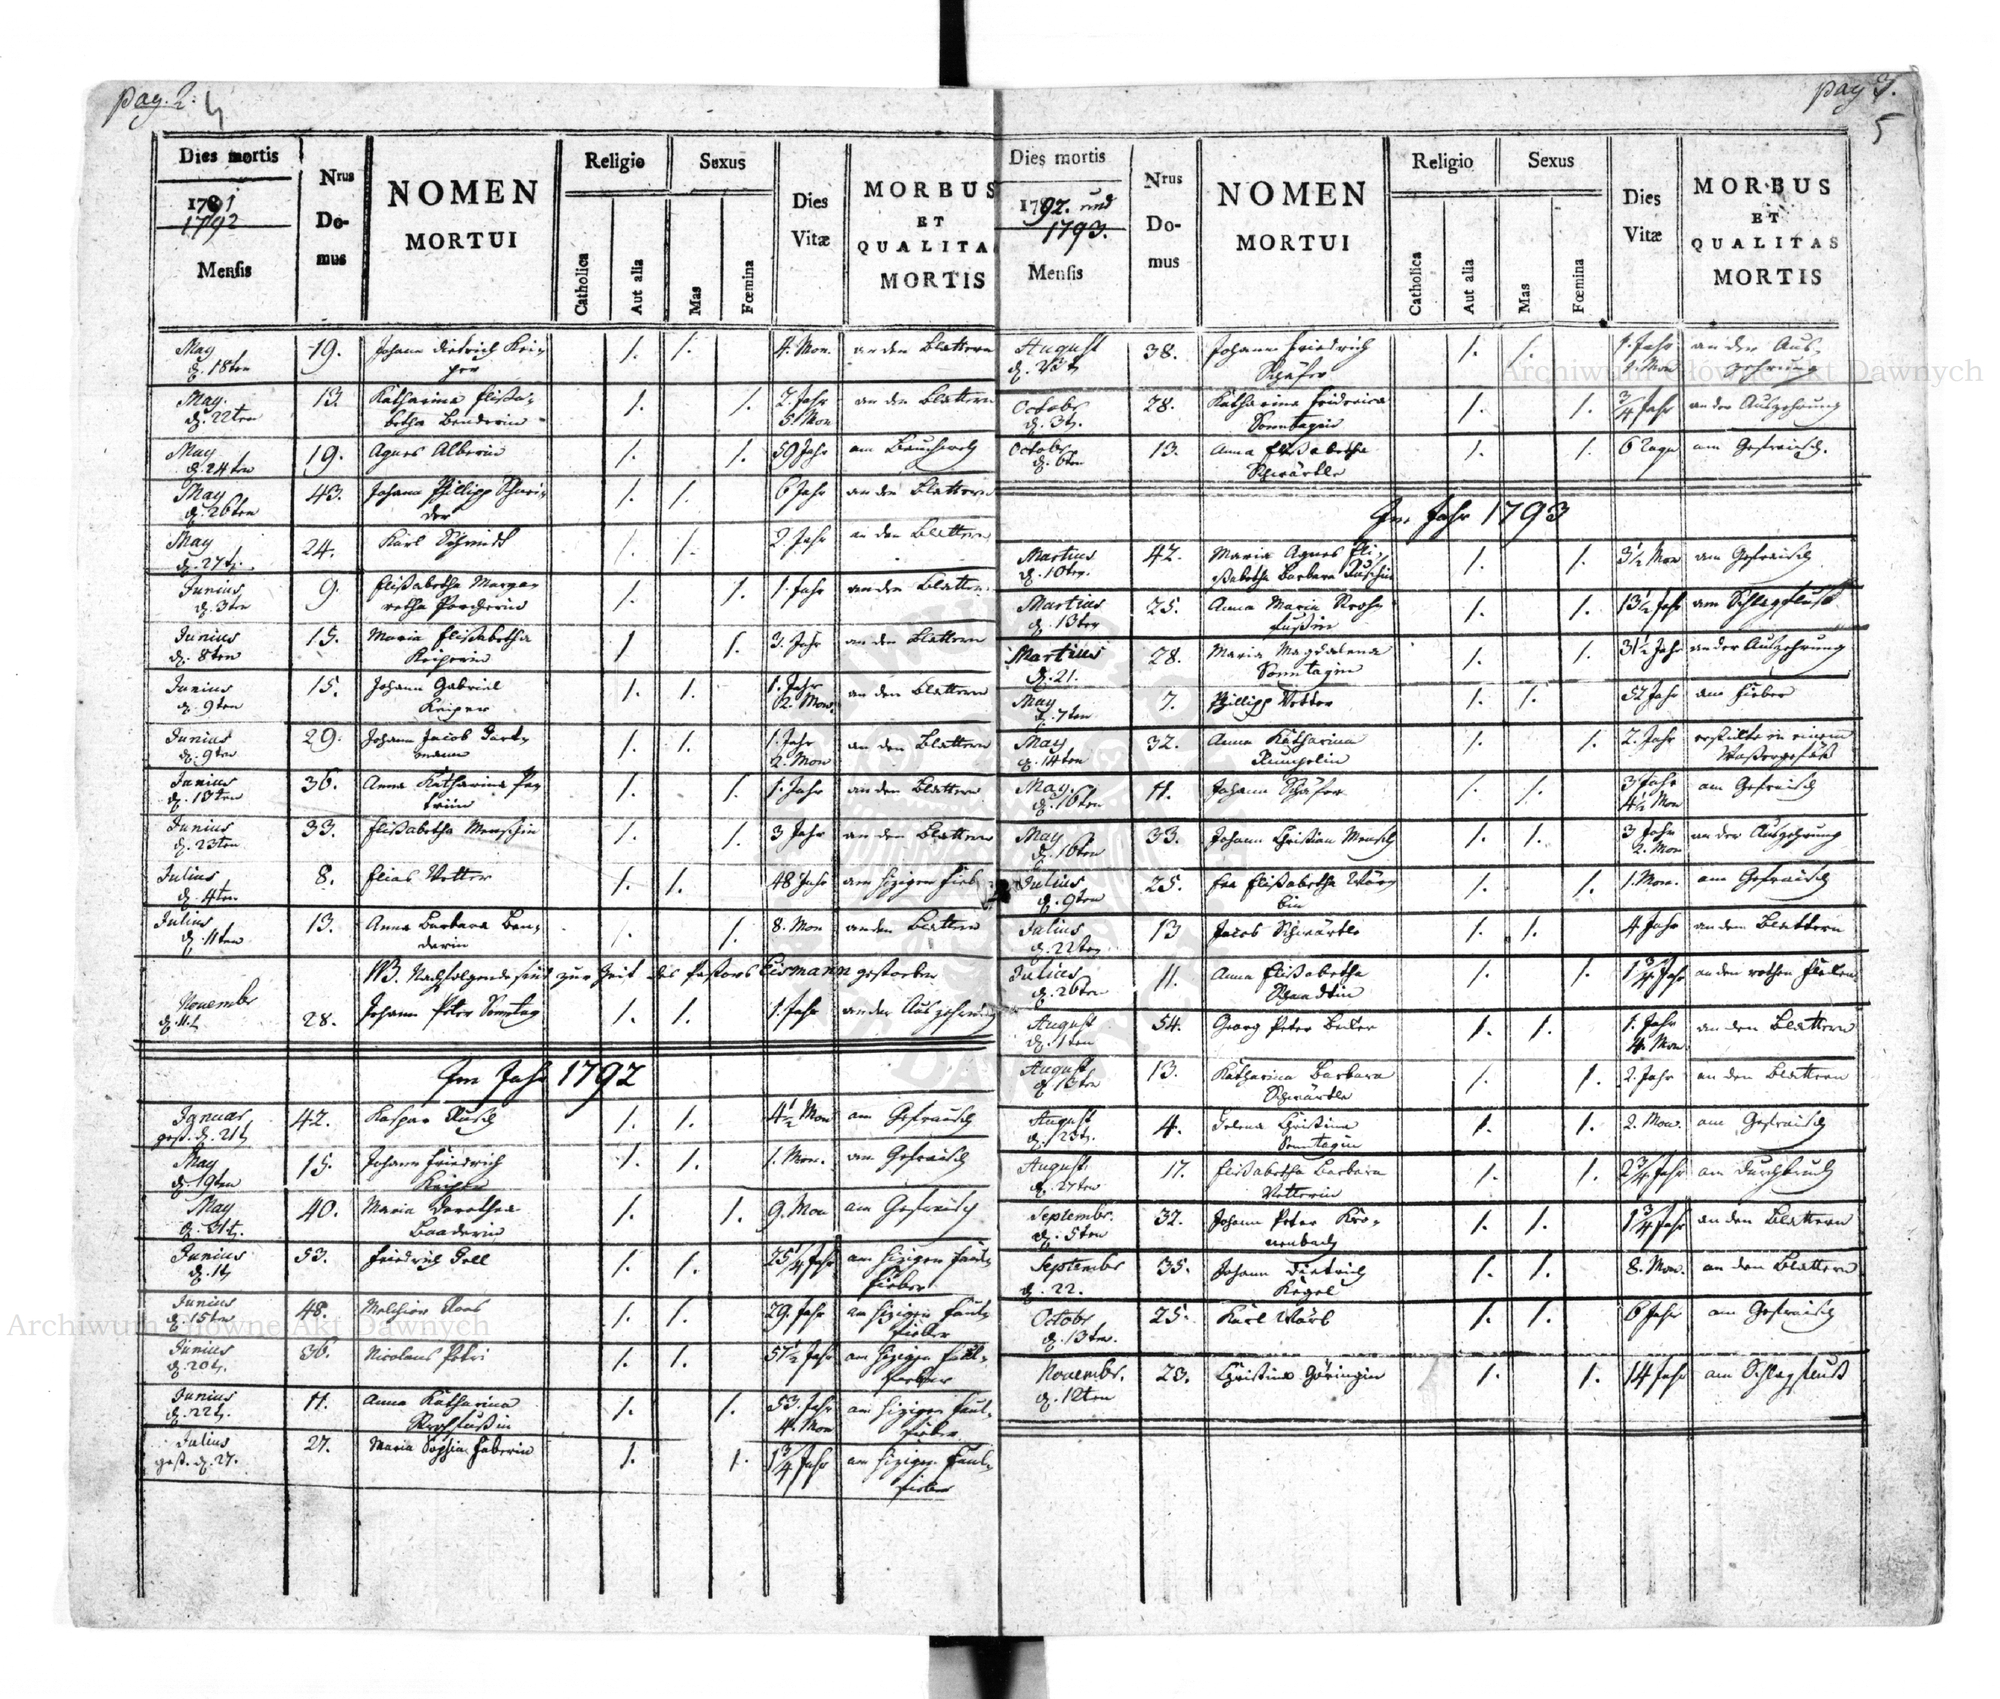 pag. 2. 4
Dies mortis
1791
1792
Mensis
Nrus
Do-
mus
NOMEN
MORTUI
Religio
Catholica
Aut alia
Sexus
Mas
Fœmina
Dies
Vitæ
MORBUS
ET
QUALITA
MORTIS
May
d. 18ten 19. Johann Dietrich Kei-
per 1. 1. 4. Mon. an den Blattern
May.
d. 22ten 13. Katharina Elisa-
betha Benderin 1. 1. 2. Jahr
5. Mon an den Blattern
May
d. 24ten 19. Agnes Alberin 1. 1. 59 Jahr am
May
d. 26ten 43. Johann Phillipp Schnei-
der 1. 1. 6 Jahr an den Blattern
May
d. 27t. 24. Karl Schmidt 1. 1. 2. Jahr an den Blattern
Junius
d. 3ten 9. Elisabetha Marga-
retha 1. 1. 1. Jahr an den Blattern
Junius
d. 8ten 15. Maria Elisabetha
Keiperin 1 1. 3. Jahr an den Blattern
Junius
d. 9ten 15. Johann Gabriel
Keiper 1. 1. 1. Jahr
2. Mon. an den Blattern
Junius
d. 9ten 29. Johann Jacob Hart-
mann 1. 1. 1. Jahr
2. Mon an den Blattern
Junius
d. 13ten 36. Anna Katharina Pe-
triin 1. 1. 1. Jahr an den Blattern
Junius
d. 23ten 33. Elisabetha Menschin 1. 1. 3 Jahr an den Blattern
Julius
d. 4ten 8. Elias Vetter 1. 1. 48 Jahr am hizigen Fieb
Julius
d. 11ten 13. Anna Barbara Ben-
derin 1. 1. 8. Mon an den Blattern
NB. Nachfolgende sind zur Zeit des Pastors Eismann gestorben
Novembr
d. 11t 28. Johann Peter Sonntag 1. 1. 1. Jahr an der Auszehrung
Im Jahr 1792
Januar
gest. d. 21t 42. Kaspar Rusch 1. 1. 4½ Mon am Gefraisch
May
d. 19ten 15. Johann Friedrich
Keiper 1. 1. 1. Mon. am Gefraisch
May
d. 31t. 40. Maria Dorothea
Baaderin 1. 1. 9. Mon am Gefraisch
Junius
d. 1t 53. Friedrich Holl 1. 1. 25¼ Jahr am hizigen Faul-
fieber
Junius
d. 15ten 48. Melchior Roos 1. 1. 29. Jahr am hizigen Faul-
fieber
Junius
d. 20t. 36. Nicolaus Petri 1. 1. 51½ Jahr am hizigen Faul-
fieber
Junius
d. 22t. 11. Anna Katharina
Krohfussin 1. 1. 53. Jahr
4. Mon am hizigen Faul-
fieber
Julius
gest. d. 27. 27. Maria Sophia Faberin 1. 1. 1¾ Jahr am hizigen Faul-
fieber
pag 3.
5
Dies mortis
1792. und
1793.
Mensis
Nrus
Do-
mus
NOMEN
MORTUI
Religio
Catholica
Aut alia
Sexus
Mas
Fœmina
Dies
Vitæ
MORBUS
ET
QUALITAS
MORTIS
August
d. 23t 38. Johann Friedrich
Schäfer 1. 1. 1. Jahr
1. Mon an der Aus-
zehrung
Octobr
d. 3t. 28. Katharina Fridrica
Sonntagin 1. 1. ¾ Jahr an der Auszehrung
Octobr
d. 6ten 13. Anna Elisabetha
Schwärtle 1. 1. 6 Tage am Gefraisch.
Im Jahr 1793
Martius
d. 10ten. 42. Maria Agnes Eli-
sabetha Barbara Ruschin 1. 1. 3½ Mon am Gefraisch
Martius
d. 13ten 25. Anna Maria Kroh-
fussin 1. 1. 13½ Jahr am Schlagfluss
Martius
d. 21. 28. Maria Magdalena
Sonntagin 1. 1. 3½ Jahr an der Auszehrung
May
d. 7ten 7. Phillipp Vetter 1. 1. 52 Jahr am Fieber
May
d. 14ten 32. Anna Katharina
1. 1. 2. Jahr in einem
May.
d. 16ten 11. Johann Schäfer 1. 1. 3 Jahr
4½ Mon am Gefraisch
May
d. 16ten 33. Johann Christian Mensch 1. 1. 3 Jahr
2. Mon an der Auszehrung
Julius
d. 9ten 25. Eva Elisabetha Wör-
bin 1. 1. 1. Mon. am Gefraisch
Julius
d. 22ten 13 Jacob Schwärtle 1. 1. 4 Jahr an den Blattern
Julius
d. 26ten 11. Anna Elisabetha
Schmidtin 1. 1. 1¾ Jahr an den rothen Flecken
August
d. 1ten 54. Georg Peter Becker 1. 1. 1. Jahr
4. Mon. an den Blattern
August
d. 13ten 13. Katharina Barbara
Schwärtle 1. 1. 2. Jahr an den Blattern
August
d. 23t. 4. Helena Christina
Sonntagin 1. 1. 2. Mon. am Gefraisch
August
d. 27ten 17. Elisabetha Barbara
Vetterin 1. 1. 2¾ Jahr am Durchbruch
Septembr.
d. 5ten 32. Johann Peter Kro-
nenbach 1. 1. 1¾ Jahr an den Blattern
Septembr
d. 22. 35. Johann Dietrich
Kegel 1. 1. 8. Mon. an den Blattern
Octobr
d. 13ten. 25. Karl Wörb 1. 1. 6 Jahr am Gefraisch
Novembr.
d. 12ten 23. Christina Göringin 1. 1. 14 Jahr am Schlagfluss
Archiwum Główne Akt Dawnych
Archiwum Główne Akt Dawnych